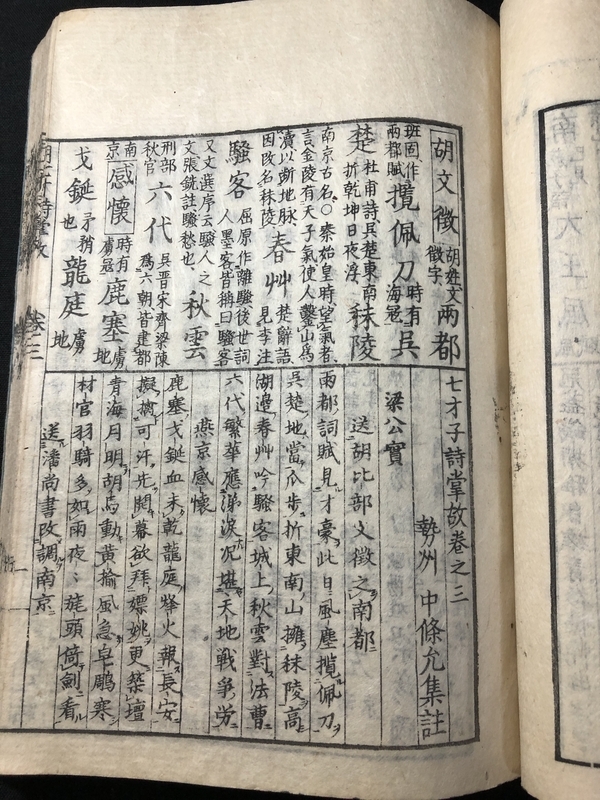 胡文徴 胡姓文徴字 兩都
班固作兩都賦 攬佩刀 時有海寇 呉
楚 杜甫詩呉楚東南折乾坤日夜浮 秣陵
南京古名○秦始皇時望氣者言金陵有天子氣使人鑿山為
瀆以斷地脉因改名秣陵 春艸 楚辭語見李注
騷客 屈原作離騷後世詞人墨客皆稱曰騷客
又文選序云騷人之文張銑註騷愁也 秋雲
刑部秋官 六代 呉晋宋齊梁陳為六朝皆建都
南京 感懷 時有虜寇 鹿塞 虜地
戈鋋 矛矟也 龍庭 虜地
七才子詩掌故卷之三
勢州 中條允集註
梁公實
送胡比部文徴之南都
兩都詞賦見才豪此日風塵攬佩刀
呉楚地當瓜步折東南山擁秣陵高
湖邉春艸吟騷客城上秋雲對法曹
六代繁華應涕淚况堪天地戰爭労
燕京感懷
鹿塞戈鋋血未乾龍庭烽火報長安
擬擒可汗先開幕欲拜嫖姚更築壇
青海月明胡馬動黄榆風急皁鵰寒
材官羽騎多如雨夜〻旄頭倚劍看
送潘尚書改調南京